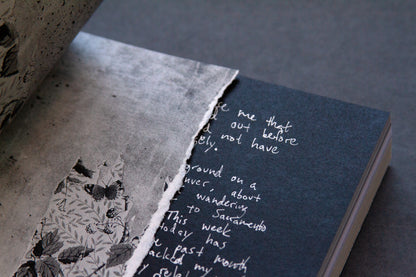 me that
out before
not have
ground on a
about
wandering
to Sacramento
This week
today has
past month
my